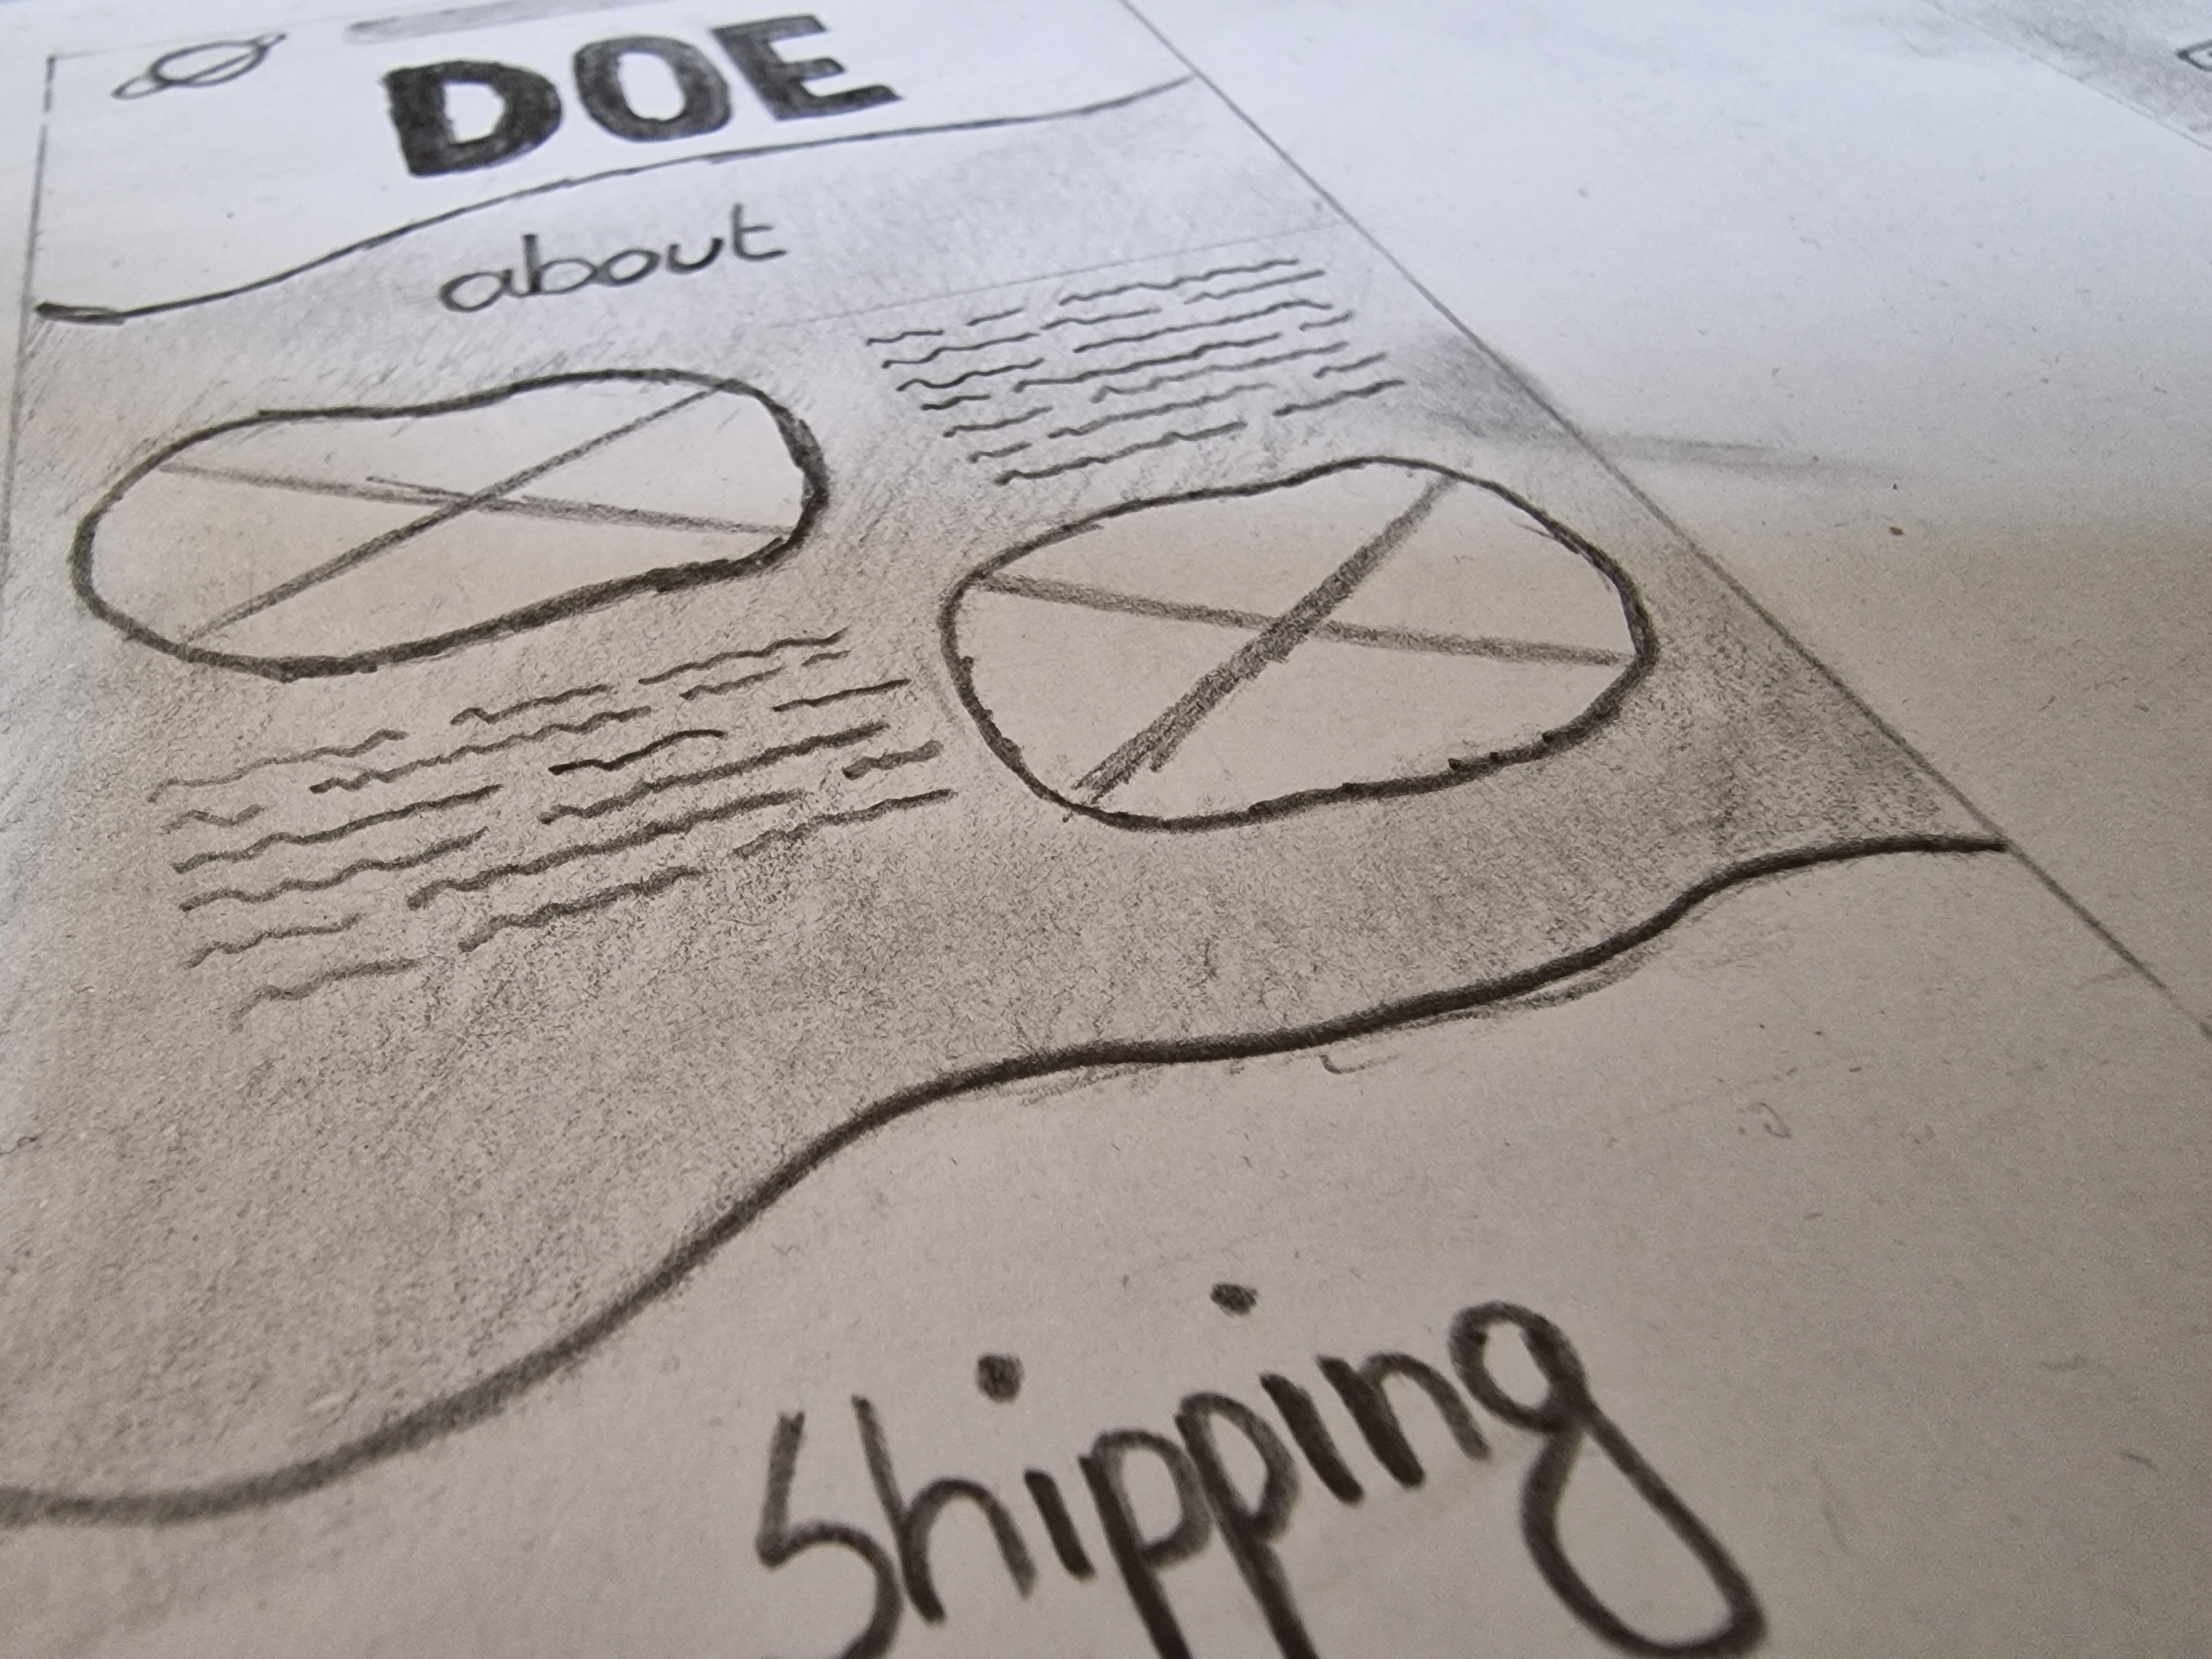 DOE
about
Shipping